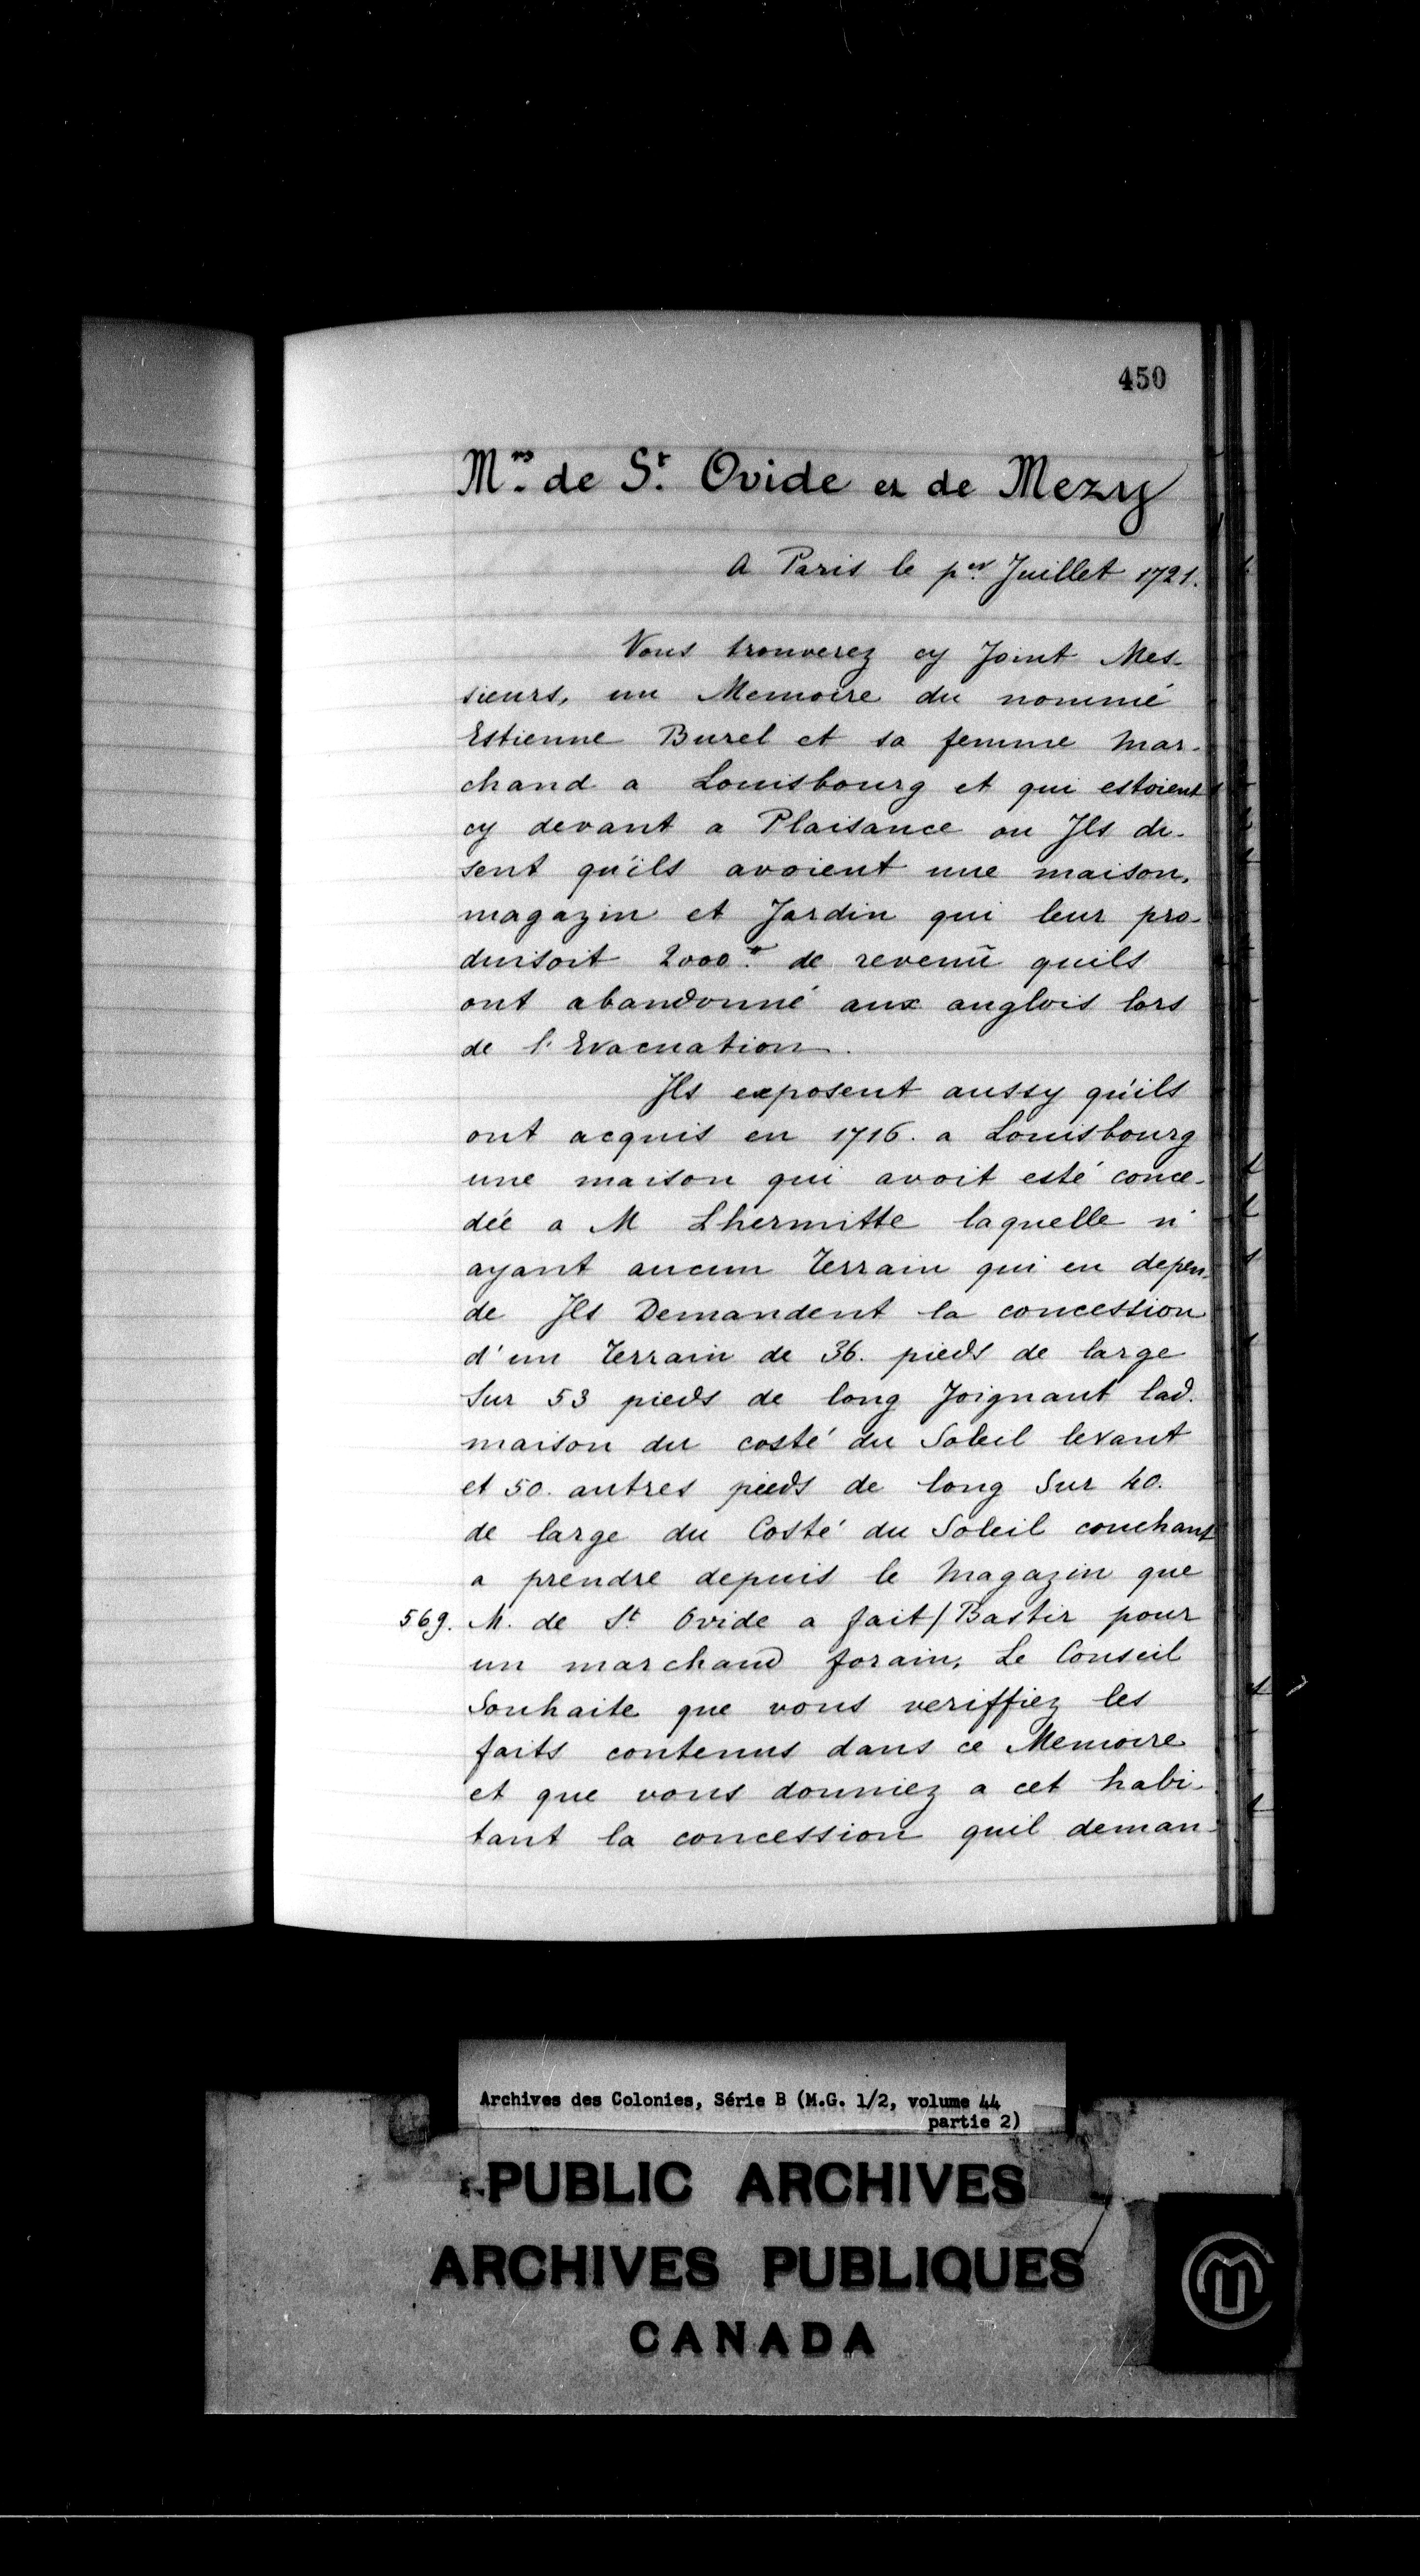 450
Mrs. de St. Ovide et de Mezy
A Paris le per. Juillet 1721.
Vous trouverez cy Joint Mes-
sieurs, un Memoire du nommé
Estienne Burel et sa femme mar-
chand a Louisbourg et qui estoient
cy devant a Plaisance ou Ils di-
sent qu'ils avoient une maison,
magazin et Jardin qui leur pro-
duisoit 2000.# de revenu quils
ont abandonné aux anglois lors
de l'Evacuation.
Ils exposent aussy qu'ils
ont acquis en 1716. a Louisbourg
une maison qui avoit esté conce-
dée a M Lhermitte laquelle n'
ayant aucun Terrain qui en depen-
de Ils Demandent la concession
d'un Terrain de 36. pieds de large
Sur 53 pieds de long Joignant lad.
maison du costé du Soleil levant
et 50. autres pieds de long Sur 40.
de large du Costé du Soleil couchant
a prendre depuis le Magazin que
569. M. de St. Ovide a fait/Bastir pour
un marchand forain, Le Conseil
Souhaite que vous veriffiez les
faits contenus dans ce Memoire
et que vous donniez a cet habi-
tant la concession quil deman-
Archives des Colonies, Série B (M.G. 1/2, volume 44
partie 2)
PUBLIC ARCHIVES
ARCHIVES PUBLIQUES
CANADA